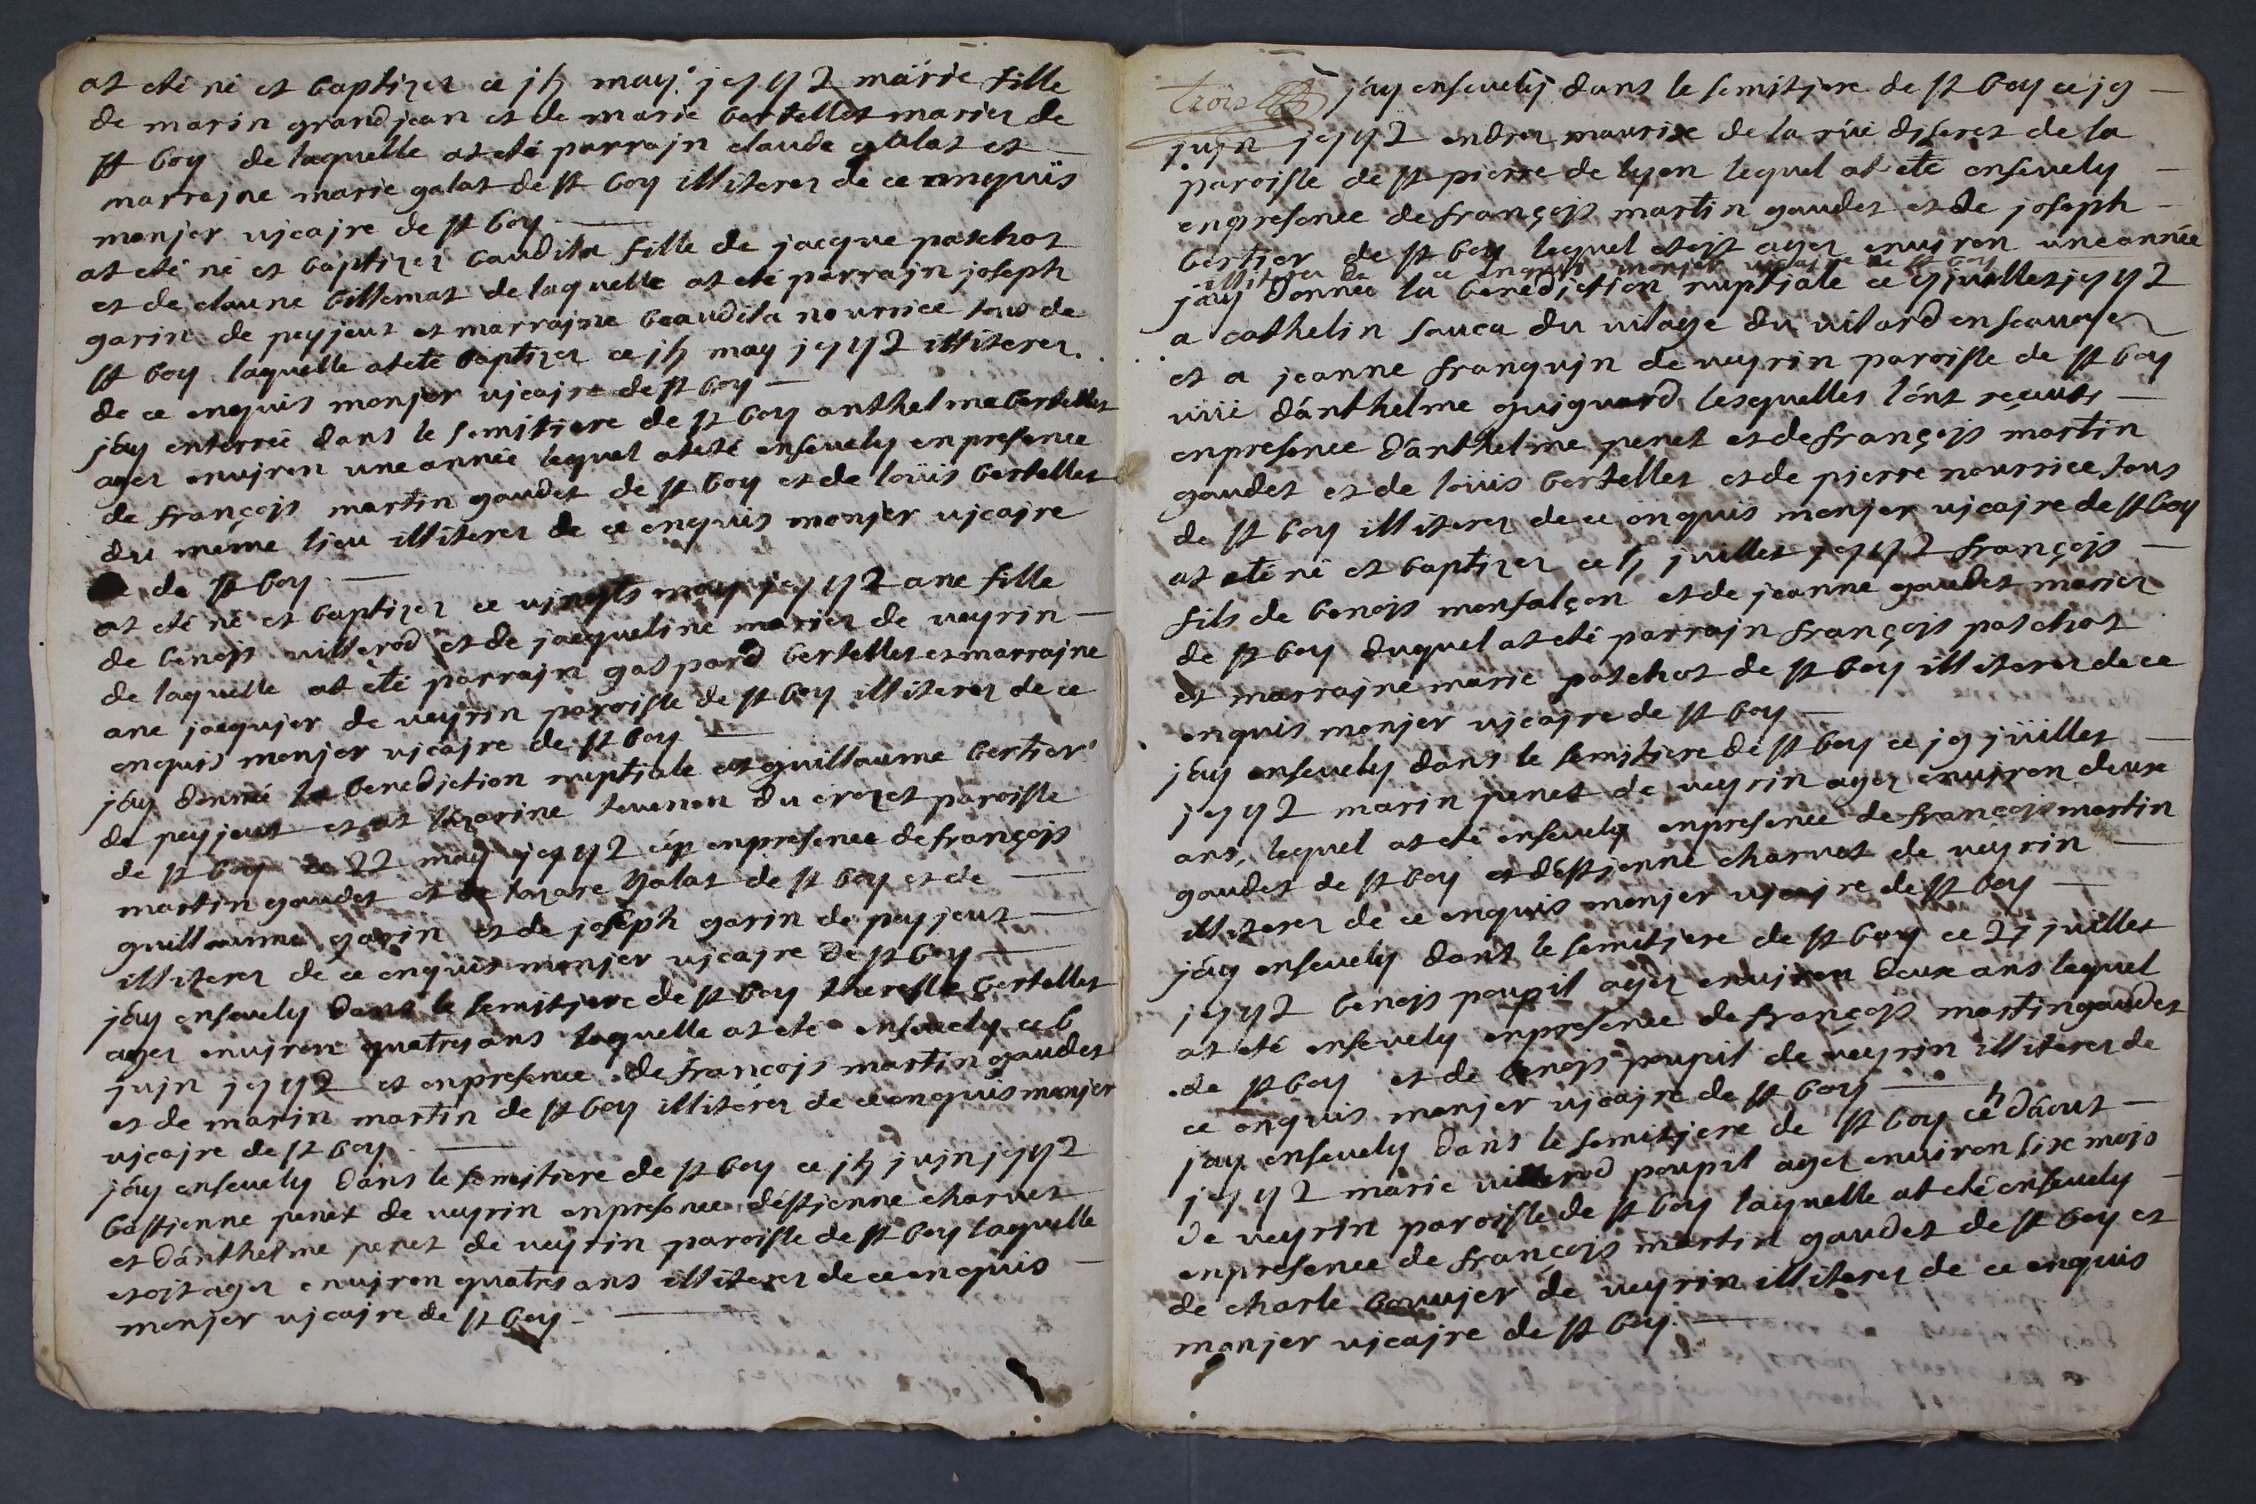 at eté né et baptizer ce jh may jg972 marie fille
de marin grandjean et de marie bertellet marier de
st boy de laquelle at eté parrajn claude galat et
marrajne marie galat de st boy illiterer de ce enquis
monjer vjcajre de st boy
at eté né et baptizer baudila fille de jacque patchot
et de billemat de laquelle at eté parrajn joseph
garin de peyjeut et marrajne beaudila nourrice tous de
st boy laquelle at eté baptizer ce jh may jg972 illiterer
de ce enquis monjer vjcajre de st boy
jáy enterreé dans le semitiere de st boy anthelme bertellet
ager envjron une année lequel at eté ensevely en presence
de françojs martin gaudet de st boy et de loüis bertellet
du même ljeu illiterer de ce enquis monjer vjcajre
de st boy
at eté né et baptizer ce vjngts may jg972 ane fille
de benojs villerod et de jacqueline marier de veyrin
de laquelle at eté parrajn gaspard bertellet et marrajne
ane jacqujer de veyrin paroisse de st boy illiterer de ce
enquis monjer vjcajre de st boy
jáy donné la benedjction nuptiale at guillaume bertier
de peyjeut et at lazarine tevenon du crozet paroisse
de st boy ce 22 may jg972 en presence de françojs
martin gaudet et de lazare galat de st boy et de
guillaume garin et de joseph garin de peyjeut
illiterer de ce enquis monjer vjcajre de st boy
jáy ensevely dans le semitjere de st boy theresse bertellet
ager envjron quatres ans laquelle at eté ensevely ce 6
jujn jg972 et en presence de françojs martin gaudet
et de marin martin de st boy illiterer de ce enquis monjer
vjcajre de st boy
jáy ensevely dans le semitiere de st boy ce jh jujn jg972
bastjenne penet de veyrin en presence déstjenne charvet
et dánthelme penet de veyrin paroisse de st boy laquelle
etojt ager envjron quatres ans illiterer de ce enquis
monjer vjcajre de st boy
trois jáy ensevely dans le semitjere de st boy ce jg
jujn jg972 andrer maurise de la rüe de la
paroisse de st pierre de lyon lequel at eté ensevely
en presence de françojs martin gaudet et de joseph
bertier de st boy lequel etojt ager envjron une année
illiterer de ce enquis monjer vjcajre de st boy
jáy donnée la benedjction nuptjale ce 9 juillet jg972
a cathelin sauca du vilage du vilard
et a jeanne franqujn de veyrin paroisse de st boy
dánthelme gujguard lesquelles lónt reçeute
en presence dánthelme penet et de françojs martin
gaudet et de loüis bertellet et de pierre nourrice tous
de st boy illiterer de ce enquis monjer vjcajre de st boy
at eté né et baptizer ce h juillet jg972 françojs
fils de benojs monfalçon et de jeanne gaudet marier
de st boy duquel at eté parrajn françojs patchot
et marrajne marie patchot de st boy illiterer de ce
enquis monjer vjcajre de st boy
jáy ensevely dans le semitiere de st boy ce jg jüillet
jg972 marin penet de veyrin ager envjron deux
ans, lequel at eté ensevely en presence de françojs martin
gaudet de st boy et déstjenne charvet de veyrin
illiterer de ce enquis monjer vjcajre de st boy
jáy ensevely dans le semitjere de st boy ce 27 juillet
jg972 benojs poupil ager envjron deux ans lequel
at eté ensevely en presence de françojs martin gaudet
de st boy et de benojs poupil de veyrin illiterer de
ce enquis monjer vjcajre de st boy
jáy ensevely dans le semitjere de st boy ce h dáout
jg972 marie villerod poupil ager environ sixe mojs
de veyrin paroisse de st boy laquelle at eté ensevely
en presence de françojs martin gaudet de st boy et
de charle bouvjer de veyrin illiterer de ce enquis
monjer vjcajre de st boy